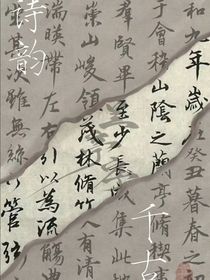 诗韵
千古
和九年歲在癸丑暮春之
山陰之蘭亭脩禊
群賢畢至少長咸集此地
崇山峻領茂林脩竹又有清
端暎帶左右引以為流觴
其次雖無絲竹管弦